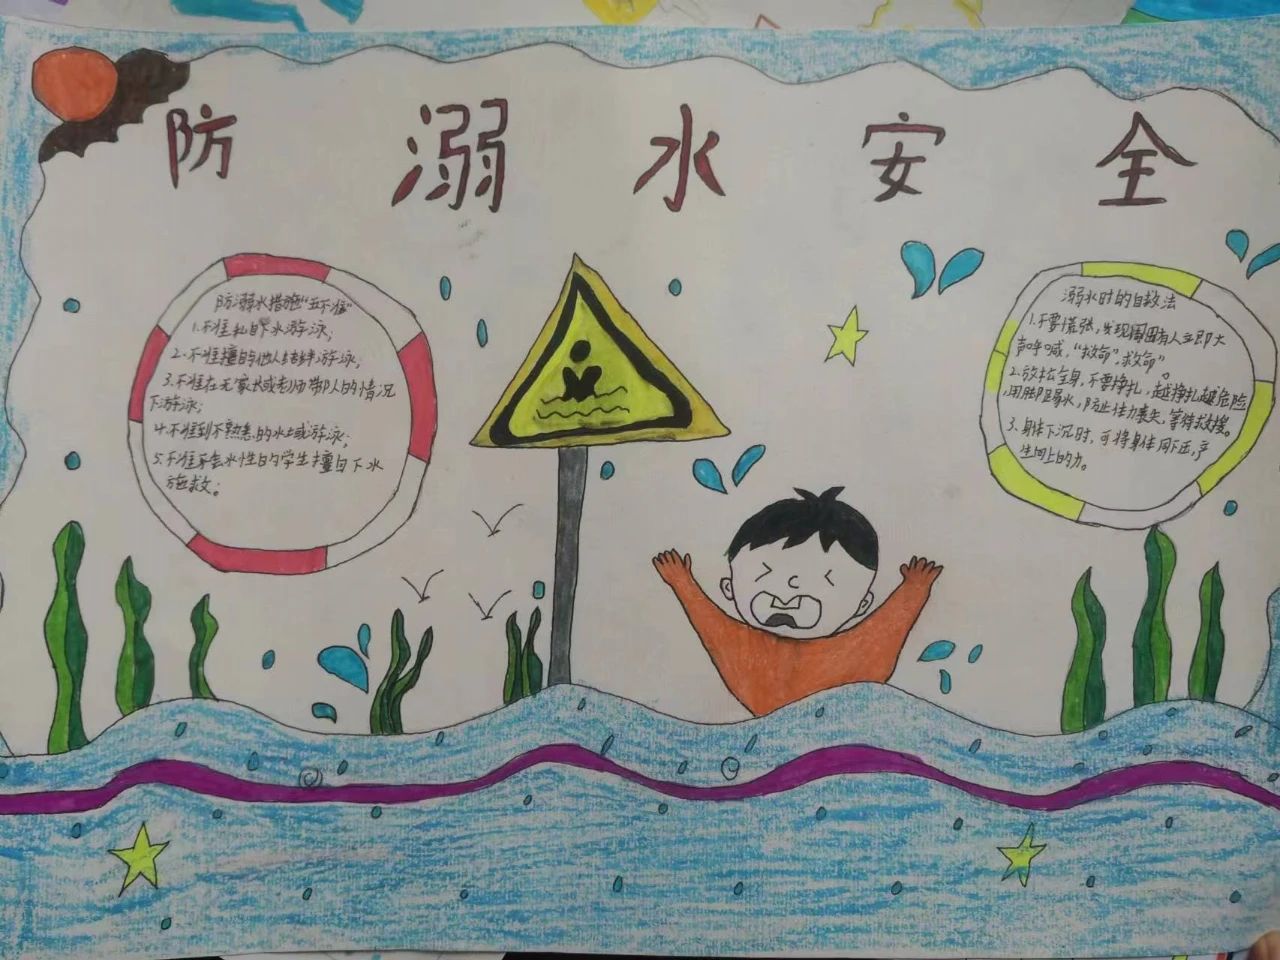 防溺水安全
防溺水措施“五不准”
1.不准私自下水游泳;
2.不准擅自与他人结伴游泳;
3.不准在无家长或老师带队的情况
下游泳;
4.不准到不熟悉的水域游泳;
5.不准不会水性的学生擅自下水
施救;
溺水时的自救法
1.不要慌张,发现周围有人立即大
声呼喊,“救命”,救命”。
2.放松全身,不要挣扎,越挣扎越危险
,用脚踢水,防止体力丧失,等待救援。
3.身体下沉时,可将身体向下压,产
生向上的力。